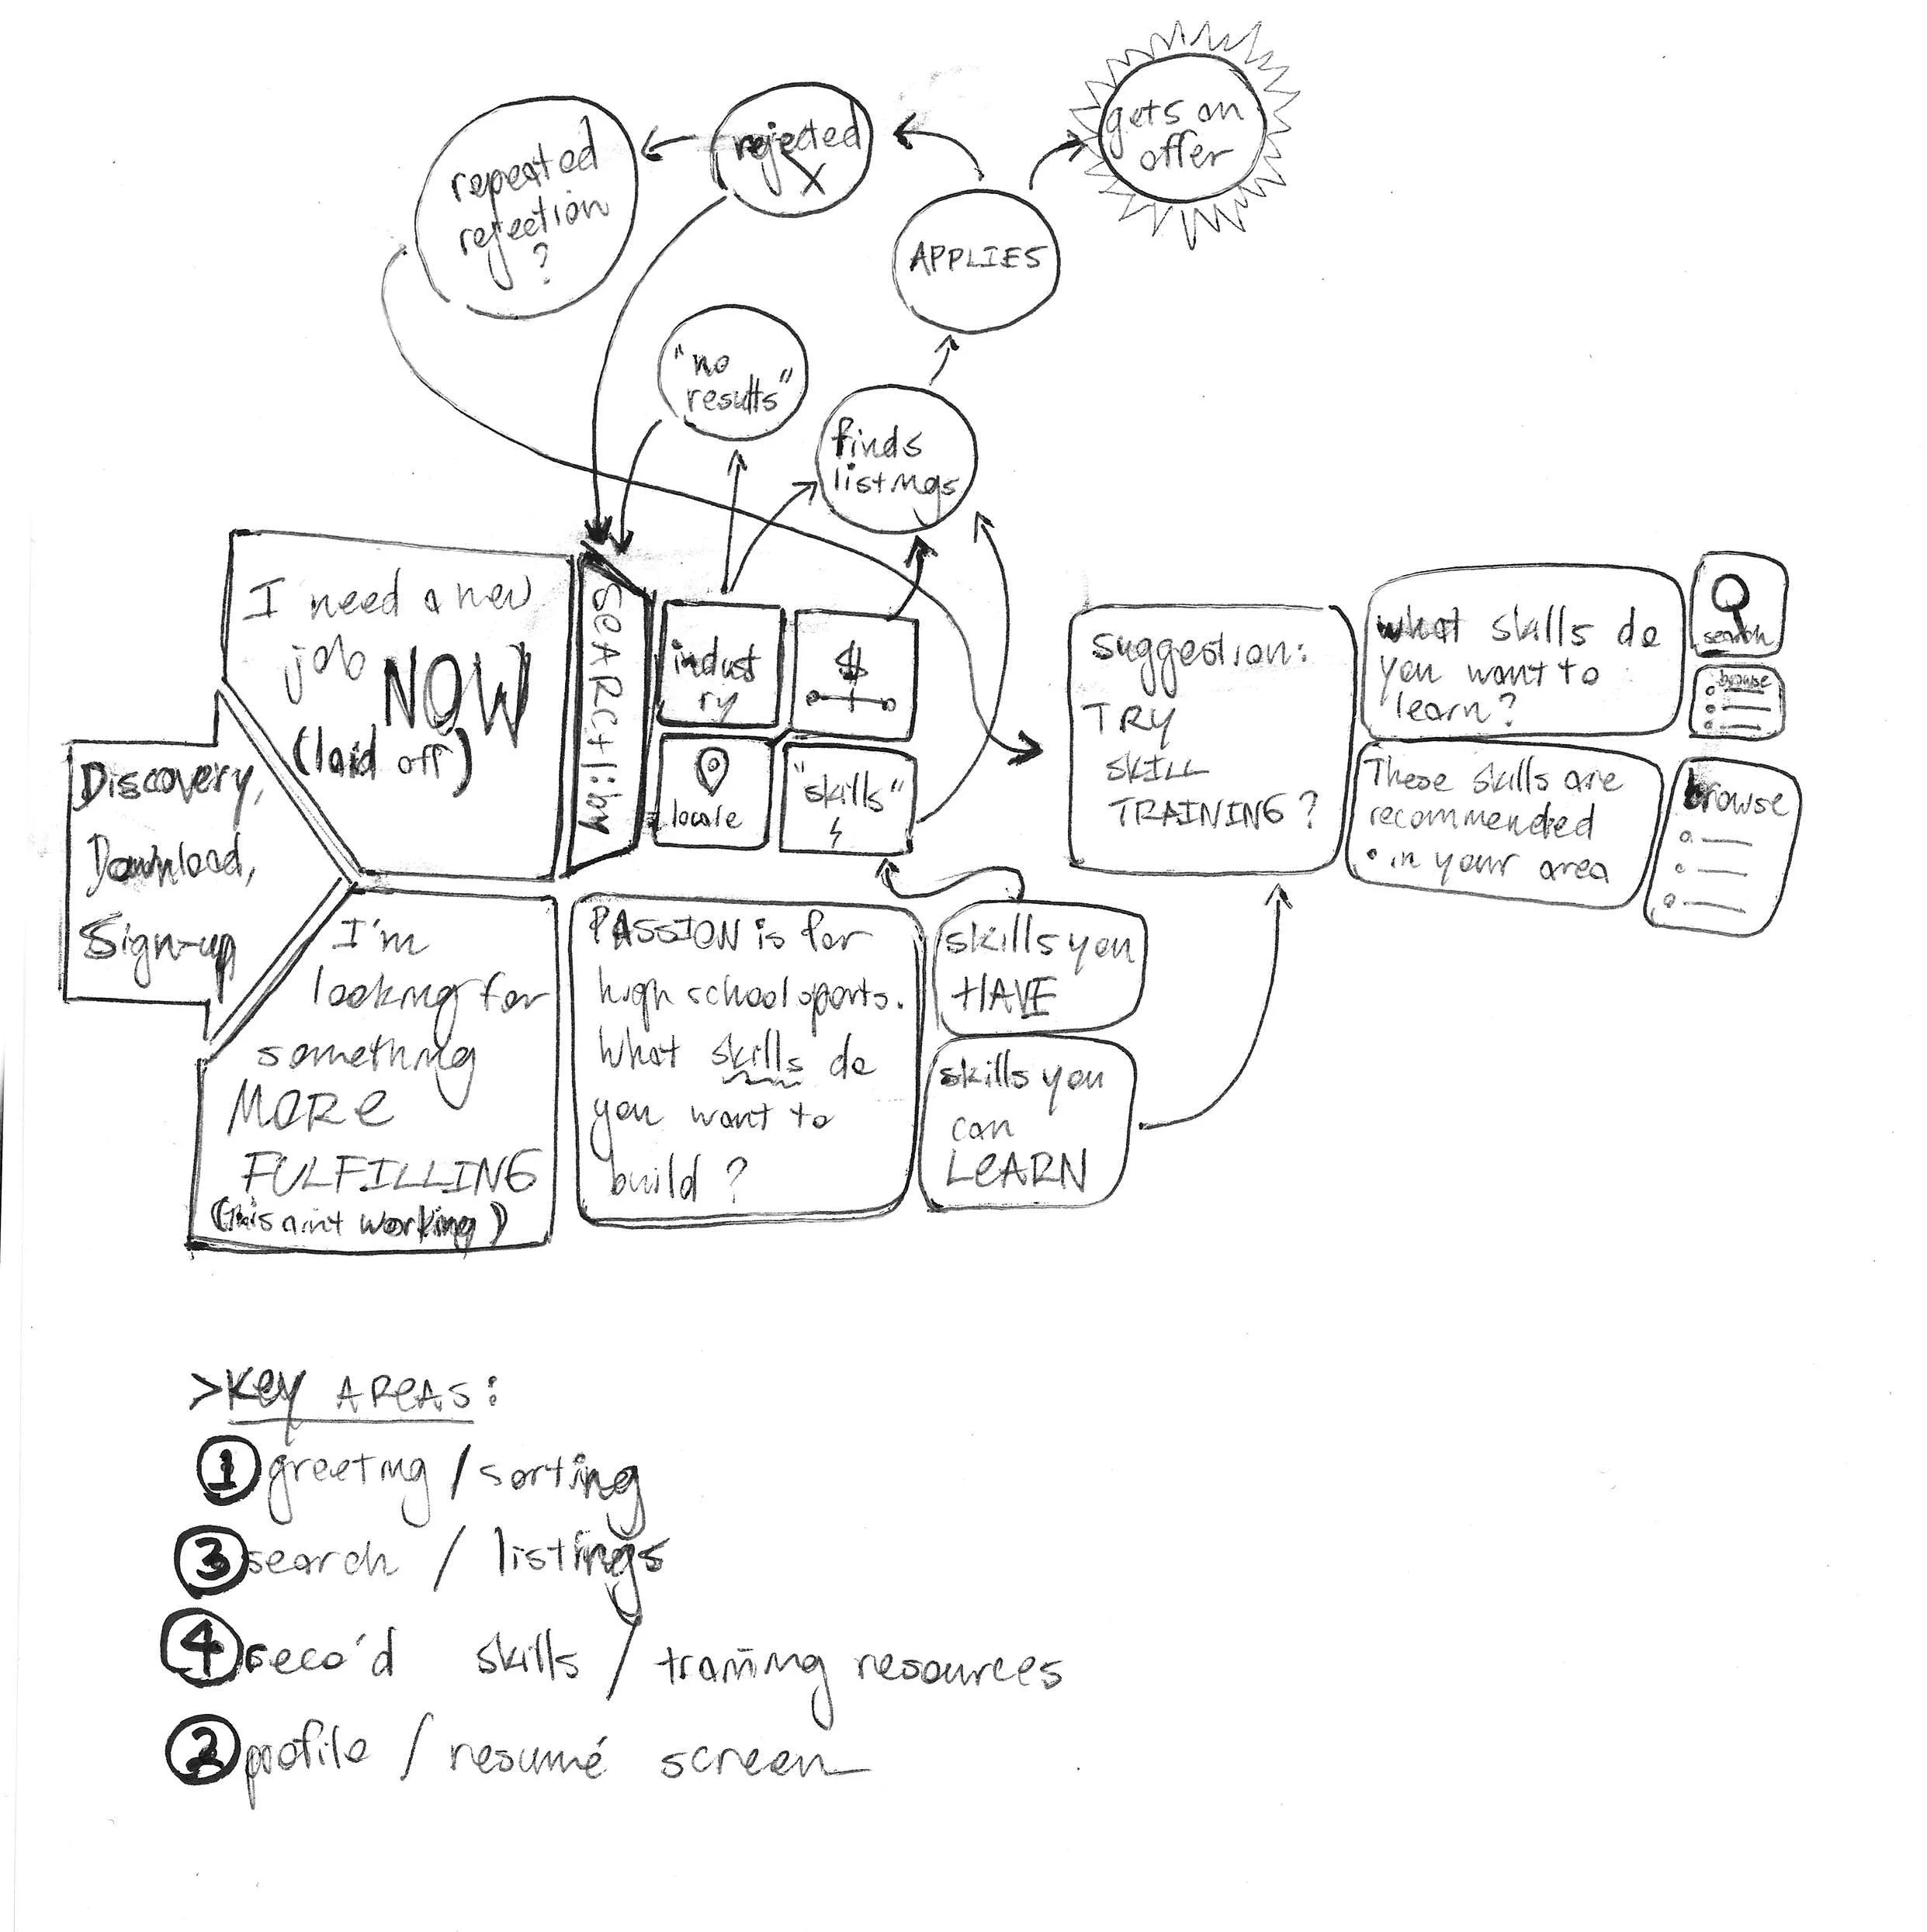 gets an
offer
rejected
X
repeated
rejection
?
APPLIES
"no
results"
finds
listings
I need a new
job NOW
(laid off)
SEARCH:by
indust
ry
$
locale
"skills"
Discovery,
Download,
Sign-up
suggestion:
TRY
SKILL
TRAINING?
what skills do
you want to
learn?
search
browse
These skills are
recommended
• in your area
browse
I'm
looking for
something
MORE
FULFILLING
(this aint working)
PASSION is for
high school sports.
What skills do
you want to
build?
skills you
HAVE
skills you
can
LEARN
>KEY AREAS:
1 greeting / sorting
3 search / listings
4 reco'd skills / training resources
2 profile / resumé screen